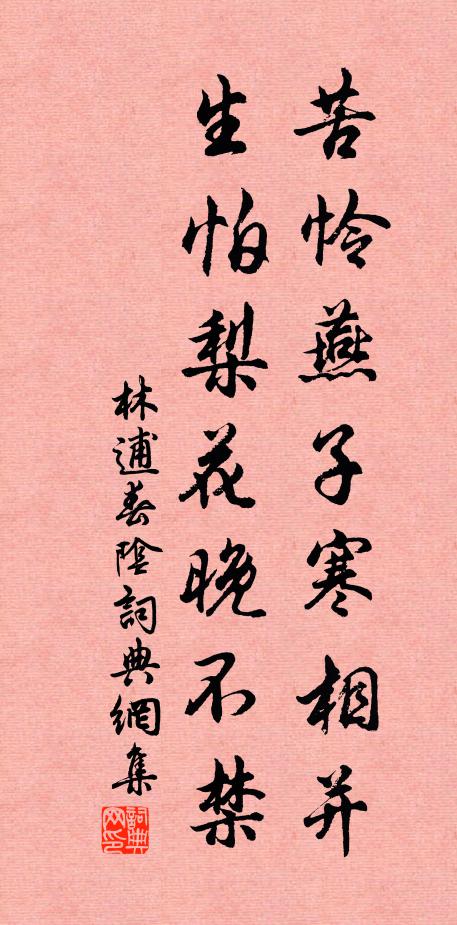 苦怜燕子寒相并
生怕梨花晚不禁
林逋春陰詞典網集
詞典网印